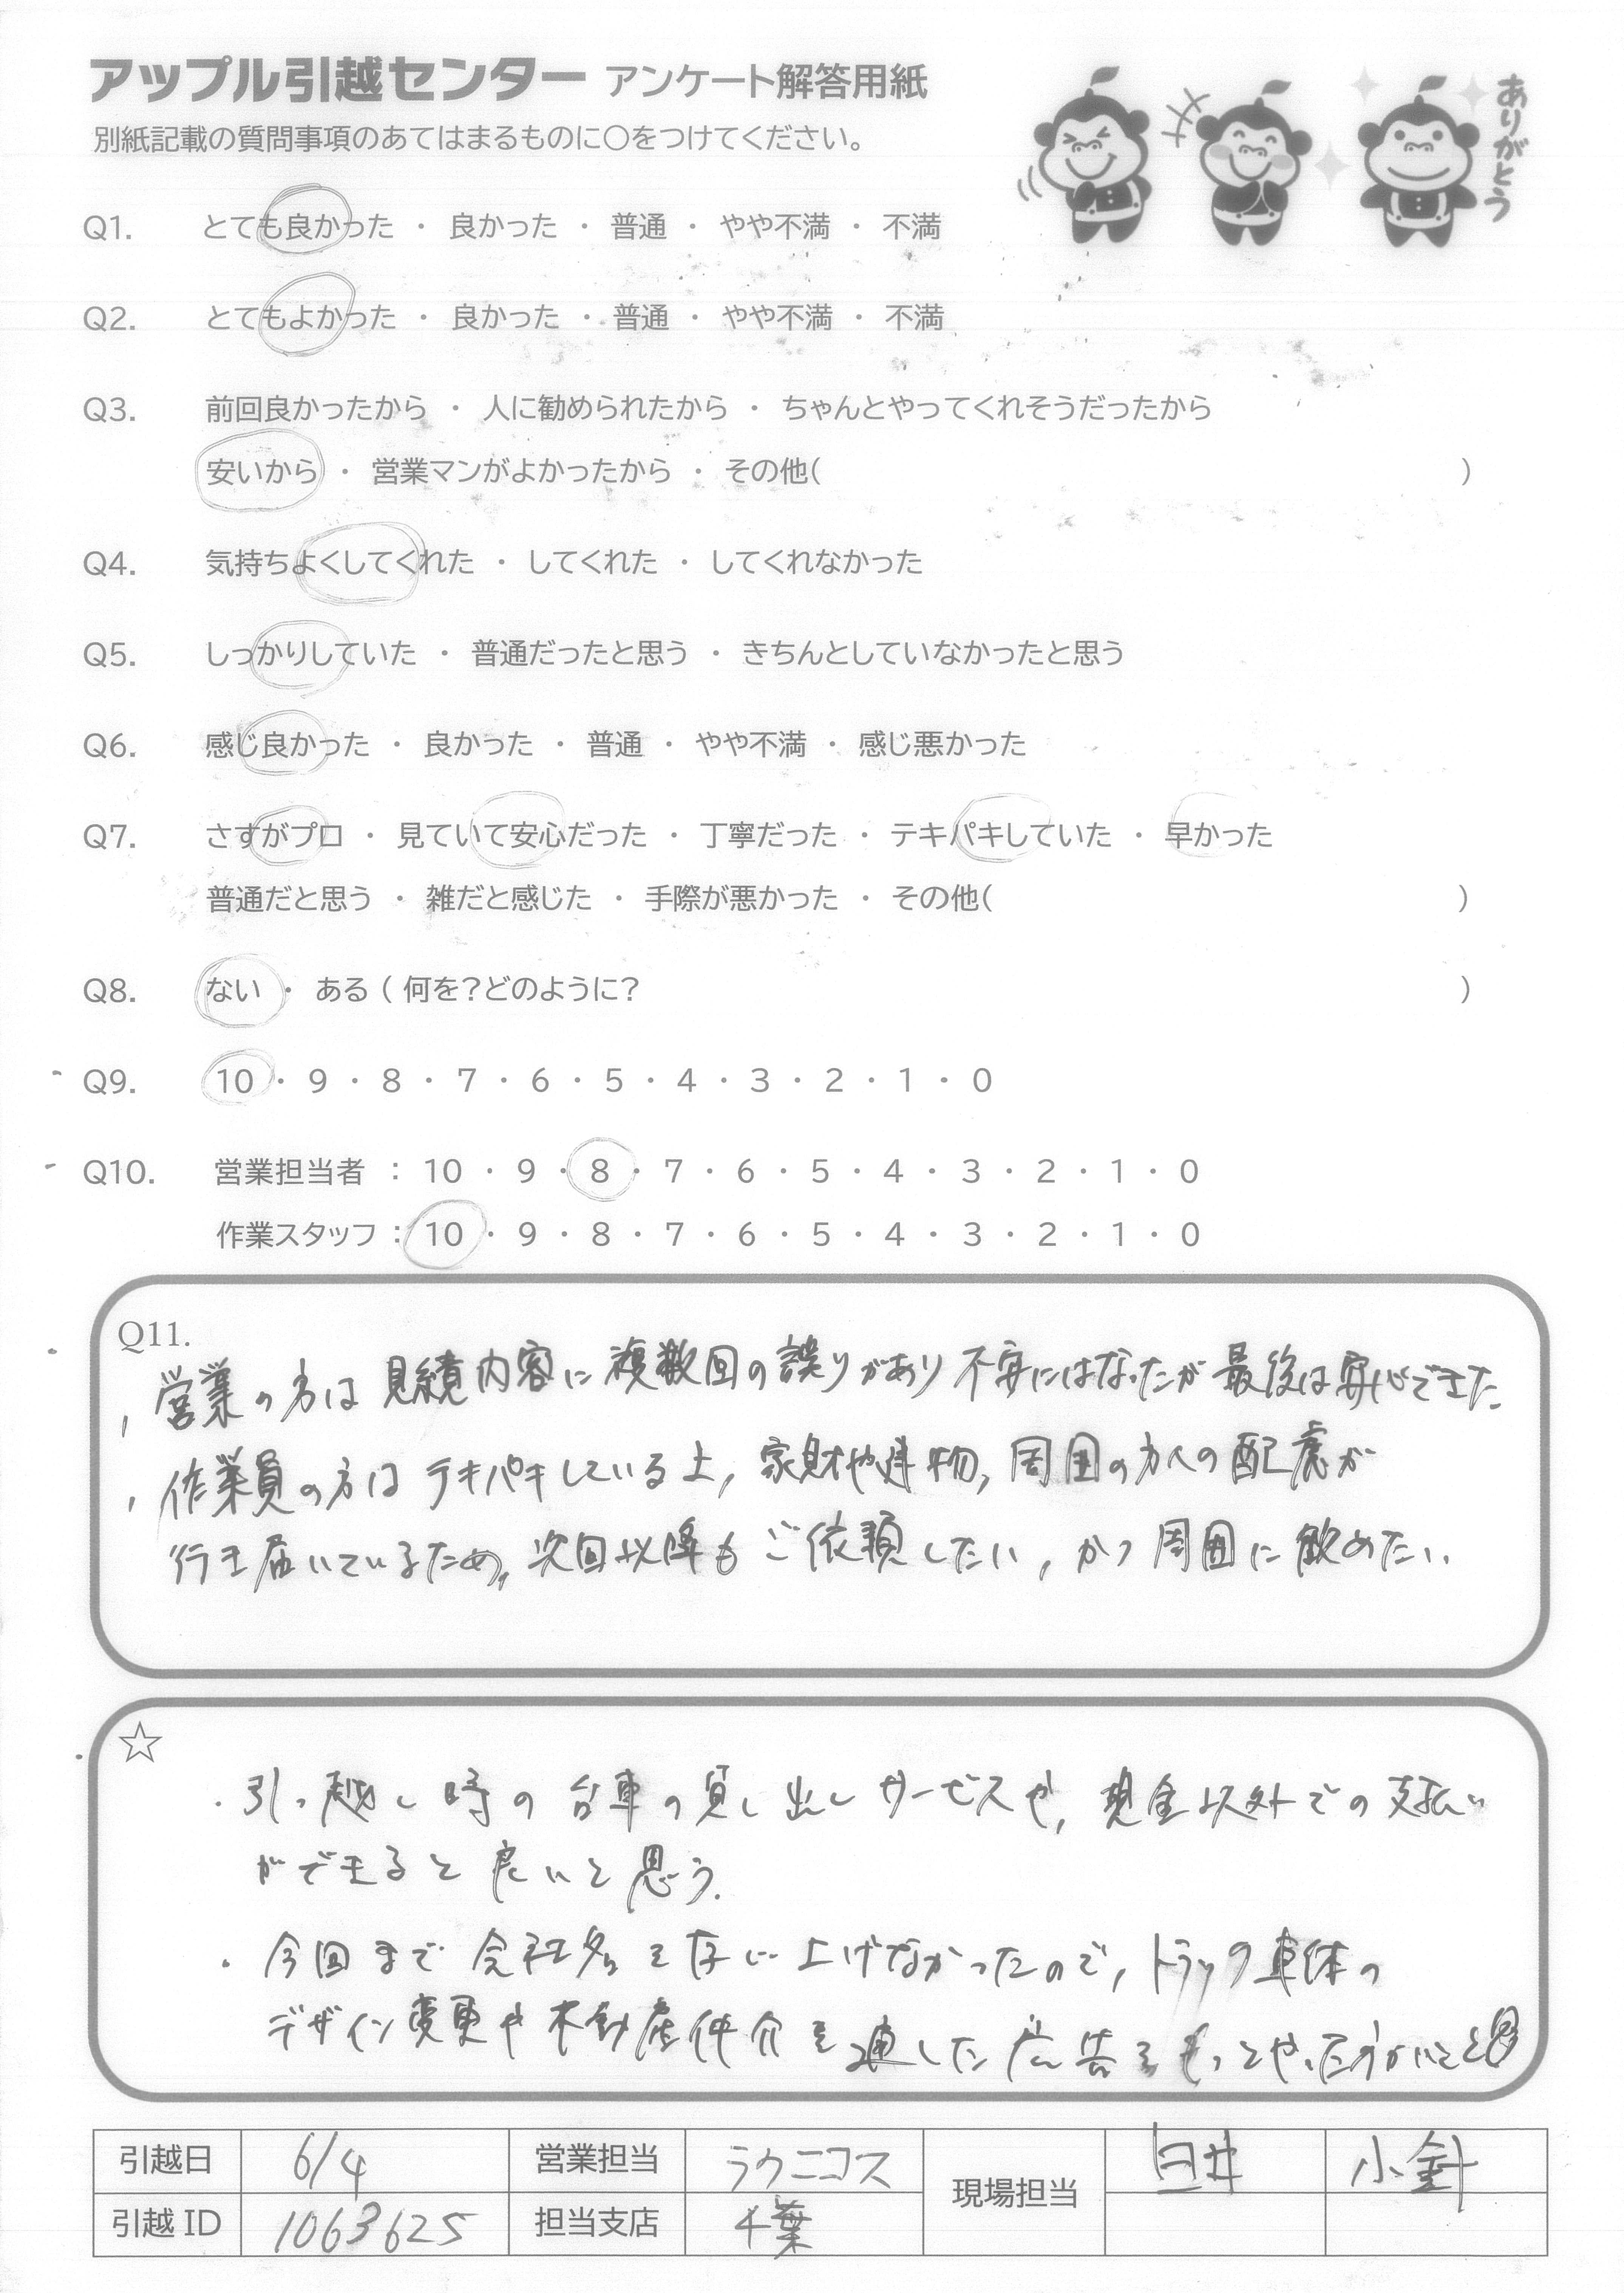 アップル引越センター アンケート解答用紙
別紙記載の質問事項のあてはまるものに○をつけてください。
ありがとう
Q1. とても良かった ・ 良かった ・ 普通 ・ やや不満 ・ 不満
Q2. とてもよかった ・ 良かった ・ 普通 ・ やや不満 ・ 不満
Q3. 前回良かったから ・ 人に勧められたから ・ ちゃんとやってくれそうだったから
安いから ・ 営業マンがよかったから ・ その他( )
Q4. 気持ちよくしてくれた ・ してくれた ・ してくれなかった
Q5. しっかりしていた ・ 普通だったと思う ・ きちんとしていなかったと思う
Q6. 感じ良かった ・ 良かった ・ 普通 ・ やや不満 ・ 感じ悪かった
Q7. さすがプロ ・ 見ていて安心だった ・ 丁寧だった ・ テキパキしていた ・ 早かった
普通だと思う ・ 雑だと感じた ・ 手際が悪かった ・ その他( )
Q8. ない ・ ある ( 何を?どのように? )
Q9. 10 ・ 9 ・ 8 ・ 7 ・ 6 ・ 5 ・ 4 ・ 3 ・ 2 ・ 1 ・ 0
Q10. 営業担当者 : 10 ・ 9 ・ 8 ・ 7 ・ 6 ・ 5 ・ 4 ・ 3 ・ 2 ・ 1 ・ 0
作業スタッフ : 10 ・ 9 ・ 8 ・ 7 ・ 6 ・ 5 ・ 4 ・ 3 ・ 2 ・ 1 ・ 0
Q11.
、営業の方は見積内容に複数回の誤りがあり不安にはなったが最後は安心できた
、作業員の方はテキパキしている上、家財や建物、周囲の方への配慮が
行き届いているため、次回以降もご依頼したい、かつ周囲に勧めたい。
☆
・引っ越し時の台車の貸し出しサービスや、現金以外での支払い
ができると良いと思う。
・今回まで会社名を存じ上げなかったので、トラック車体の
デザイン変更や不動産仲介を通した広告をもっとやった方がいいと思
引越日 6/4 営業担当 ラウニコス 現場担当 臼井 小針
引越 ID 1063625 担当支店 千葉